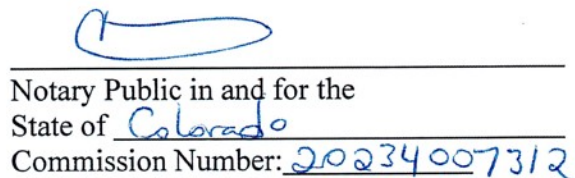 Notary Public in and for the
State of Colorado
Commission Number: 20234007312